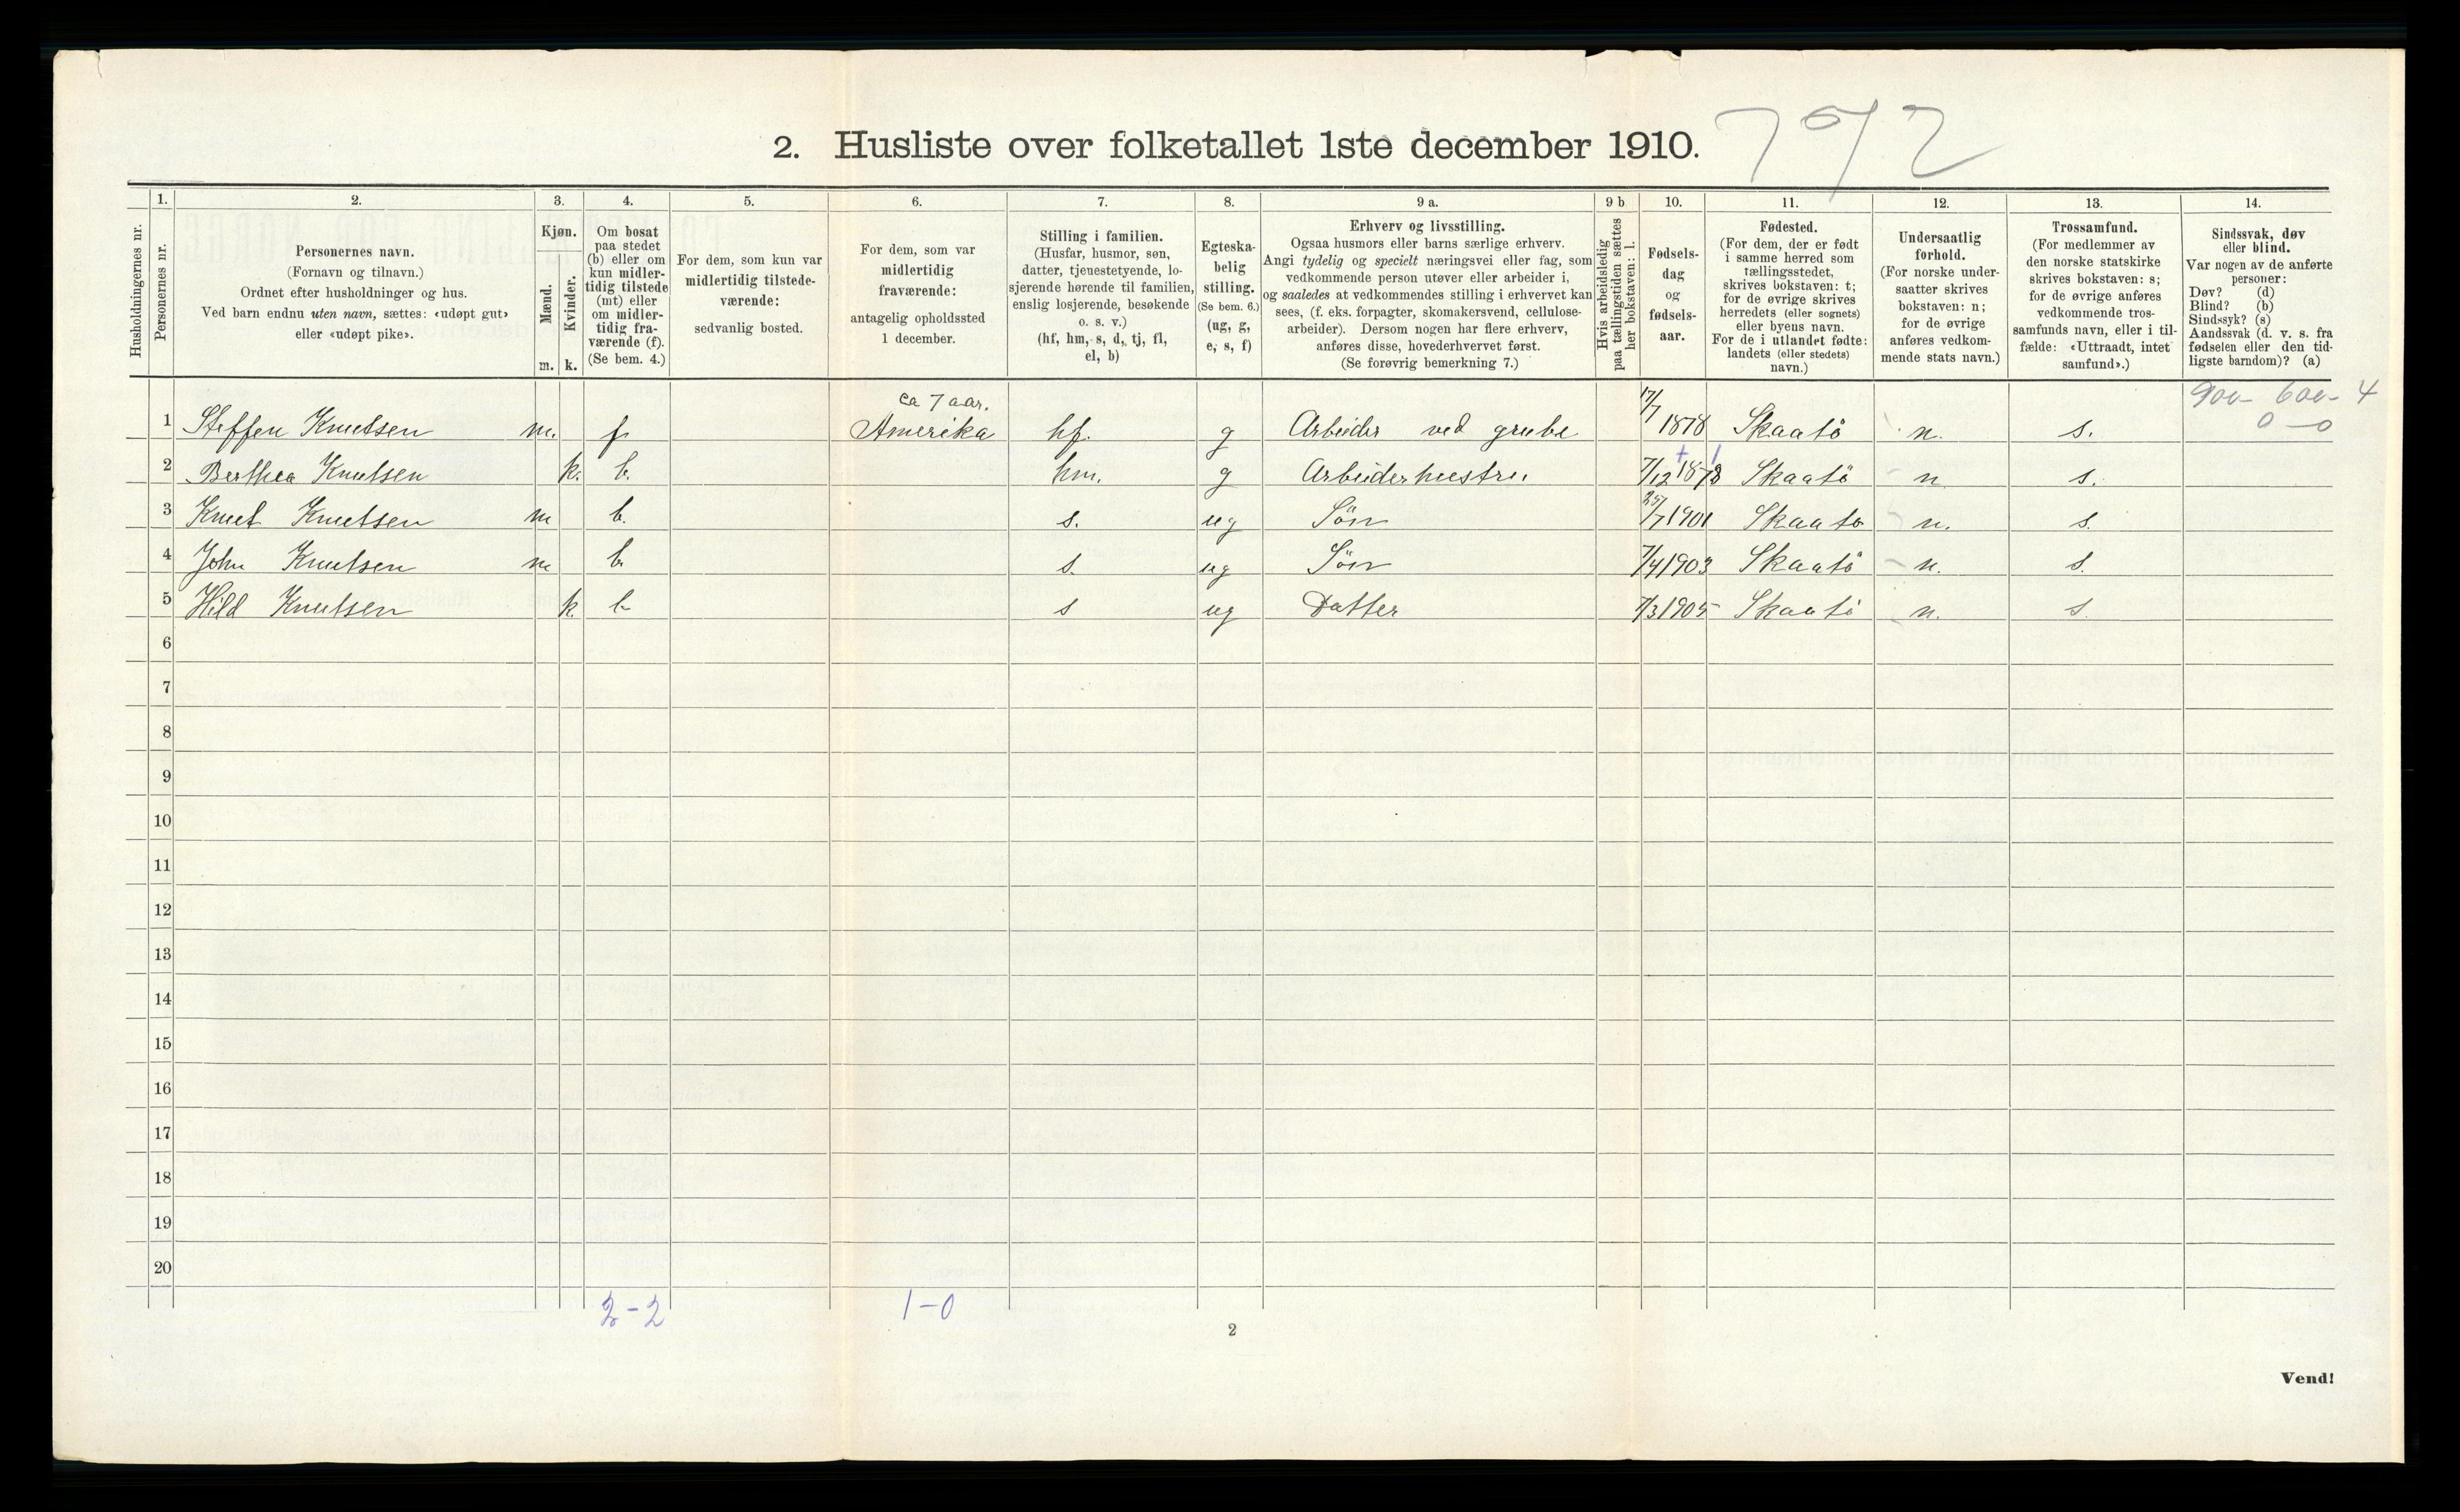 2. Husliste over folketallet 1ste december 1910.
Husholdningernes nr.
1.
Personernes nr.
2.
Personernes navn.
(Fornavn og tilnavn.)
Ordnet efter husholdninger og hus.
Ved barn endnu uten navn, sættes: «udøpt gut»
eller «udøpt pike».
3.
Kjøn.
Mænd.
m.
Kvinder.
k.
4.
Om bosat
paa stedet
(b) eller om
kun midler-
tidig tilstede
(mt) eller
om midler-
tidig fra-
værende (f).
(Se bem. 4.)
5.
For dem, som kun var
midlertidig tilstede-
værende:
sedvanlig bosted.
6.
For dem, som var
midlertidig
fraværende:
antagelig opholdssted
1 december.
7.
Stilling i familien.
(Husfar, husmor, søn,
datter, tjenestetyende, lo-
sjerende hørende til familien,
enslig losjerende, besøkende
o. s. v.)
(hf, hm, s, d, tj, fl,
el, b)
8.
Egteska-
belig
stilling.
(Se bem. 6.)
(ug, g,
e, s, f)
9 a.
Erhverv og livsstilling.
Ogsaa husmors eller barns særlige erhverv.
Angi tydelig og specielt næringsvei eller fag, som
vedkommende person utøver eller arbeider i,
og saaledes at vedkommendes stilling i erhvervet kan
sees, (f. eks. forpagter, skomakersvend, cellulose-
arbeider). Dersom nogen har flere erhverv,
anføres disse, hovederhvervet først.
(Se forøvrig bemerkning 7.)
9 b
Hvis arbeidsledig
paa tællingstiden sættes
her bokstaven: l.
10.
Fødsels-
dag
og
fødsels-
aar.
11.
Fødested.
(For dem, der er født
i samme herred som
tællingsstedet,
skrives bokstaven: t;
for de øvrige skrives
herredets (eller sognets)
eller byens navn.
For de i utlandet fødte:
landets (eller stedets)
navn.)
12.
Undersaatlig
forhold.
(For norske under-
saatter skrives
bokstaven: n;
for de øvrige
anføres vedkom-
mende stats navn.)
13.
Trossamfund.
(For medlemmer av
den norske statskirke
skrives bokstaven: s;
for de øvrige anføres
vedkommende tros-
samfunds navn, eller i til-
fælde: «Uttraadt, intet
samfund».)
14.
Sindssvak, døv
eller blind.
Var nogen av de anførte
personer:
Døv? (d)
Blind? (b)
Sindssyk? (s)
Aandssvak (d. v. s. fra
fødselen eller den tid-
ligste barndom)? (a)
900- 600- 4
0 - 0
ca 7 aar.
1 Steffen Knutsen m. f Amerika hf. g Arbeider ved grube 17/7 1878 Skaatö n. s.
2 Berthea Knutsen k. b. hm. g Arbeiderhustru 7/12 1878 Skaatö n s.
3 Knut Knutsen m b. s. ug Sön 25/7 1901 Skaatö n. s.
4 John Knutsen m b. s. ug Sön 7/4 1903 Skaatö n. s.
5 Hild Knutsen k. b s ug Datter 7/3 1905 Skaatö n. s.
6
7
8
9
10
11
12
13
14
15
16
17
18
19
20
2-2 1-0
2
Vend!